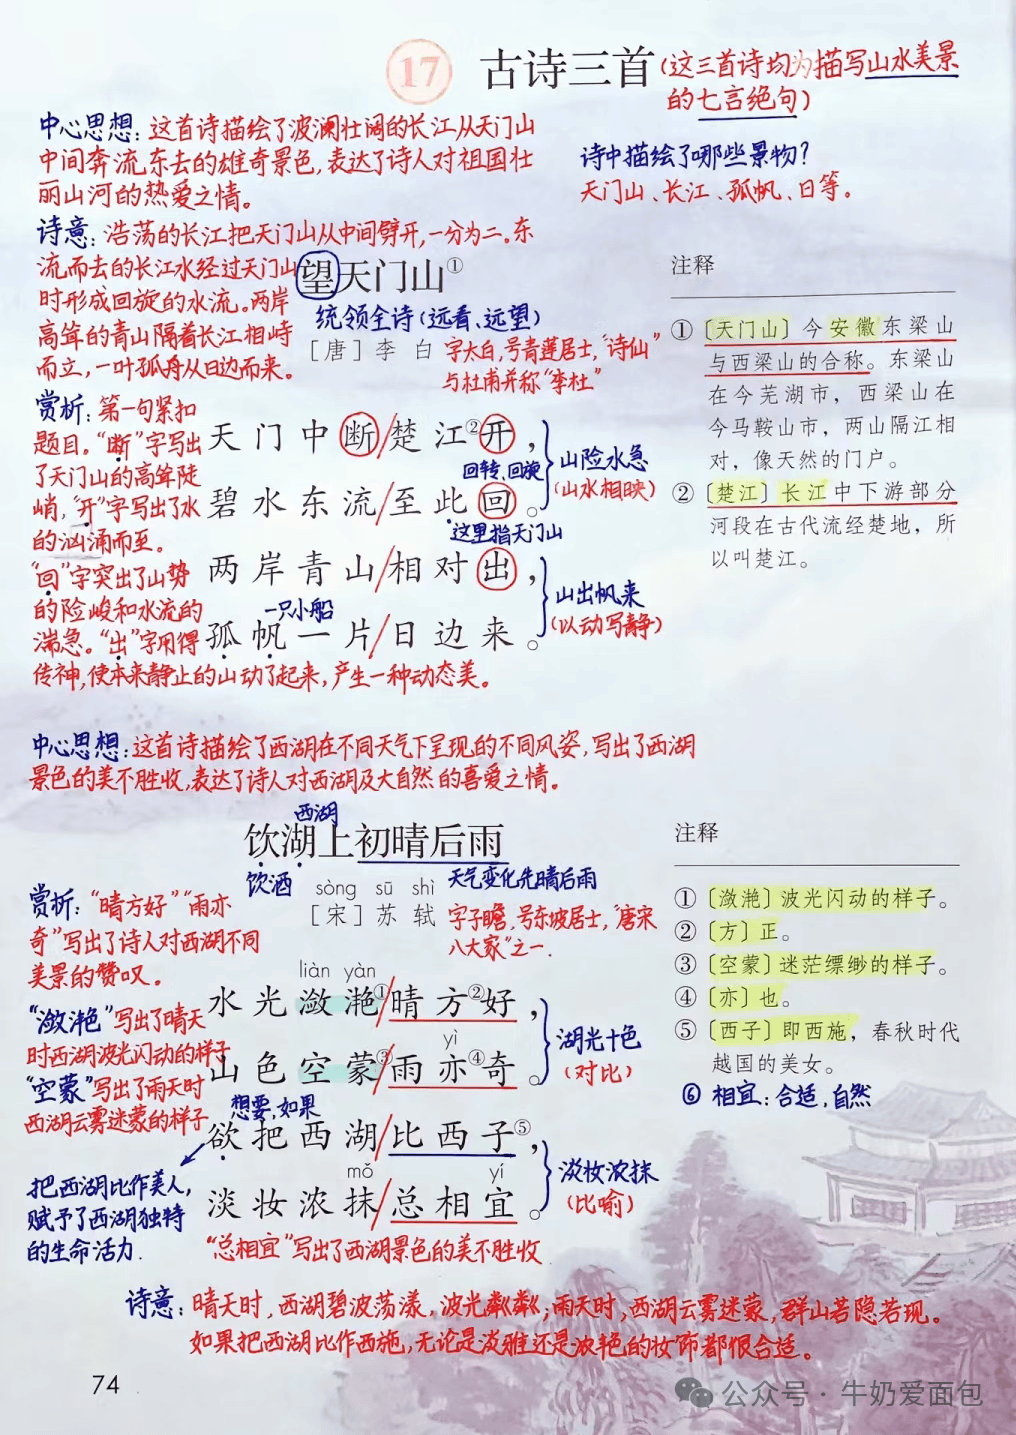 17 古诗三首(这三首诗均为描写山水美景
的七言绝句)
中心思想:这首诗描绘了波澜壮阔的长江从天门山
中间奔流,东去的雄奇景色,表达了诗人对祖国壮
丽山河的热爱之情。
诗中描绘了哪些景物?
天门山、长江、孤帆、日等。
诗意:浩荡的长江把天门山从中间劈开,一分为二。东
流而去的长江水经过天门山
时形成回旋的水流。两岸
高耸的青山隔着长江相峙
而立,一叶孤舟从日边而来。
望天门山①
统领全诗(远看、远望)
[唐]李 白 字太白,号青莲居士,“诗仙”
与杜甫并称“李杜”
赏析:第一句紧扣
题目。“断”字写出
了天门山的高耸陡
峭,“开”字写出了水
的汹涌而至。
“回”字突出了山势
的险峻和水流的
湍急。“出”字用得
传神,使本来静止的山动了起来,产生一种动态美。
天门中断/楚江②开,
回转、回旋
碧水东流/至此回。
这里指天门山
两岸青山/相对出,
一只小船
孤帆一片/日边来。
山险水急
(山水相映)
山出帆来
(以动写静)
注释
①〔天门山〕今安徽东梁山
与西梁山的合称。东梁山
在今芜湖市,西梁山在
今马鞍山市,两山隔江相
对,像天然的门户。
②〔楚江〕长江中下游部分
河段在古代流经楚地,所
以叫楚江。
中心思想:这首诗描绘了西湖在不同天气下呈现的不同风姿,写出了西湖
景色的美不胜收,表达了诗人对西湖及大自然的喜爱之情。
西湖
饮湖上初晴后雨
饮酒
天气变化先晴后雨
sòng sū shì
[宋]苏 轼 字子瞻,号东坡居士,“唐宋
八大家”之一.
赏析:“晴方好”“雨亦
奇”写出了诗人对西湖不同
美景的赞叹。
“潋滟”写出了晴天
时西湖波光闪动的样子
“空蒙”写出了雨天时
西湖云雾迷蒙的样子
liàn yàn
水光潋滟①/晴方②好,
yì
山色空蒙③/雨亦④奇。
想要,如果
欲把西湖/比西子⑤,
mǒ yí
淡妆浓抹/总相宜。
湖光十色
(对比)
淡妆浓抹
(比喻)
把西湖比作美人,
赋予了西湖独特
的生命活力.
“总相宜”写出了西湖景色的美不胜收
注释
①〔潋滟〕波光闪动的样子。
②〔方〕正。
③〔空蒙〕迷茫缥缈的样子。
④〔亦〕也。
⑤〔西子〕即西施,春秋时代
越国的美女。
⑥ 相宜:合适,自然
诗意:晴天时,西湖碧波荡漾,波光粼粼;雨天时,西湖云雾迷蒙,群山若隐若现。
如果把西湖比作西施,无论是淡雅还是浓艳的妆饰都很合适。
74
公众号·牛奶爱面包